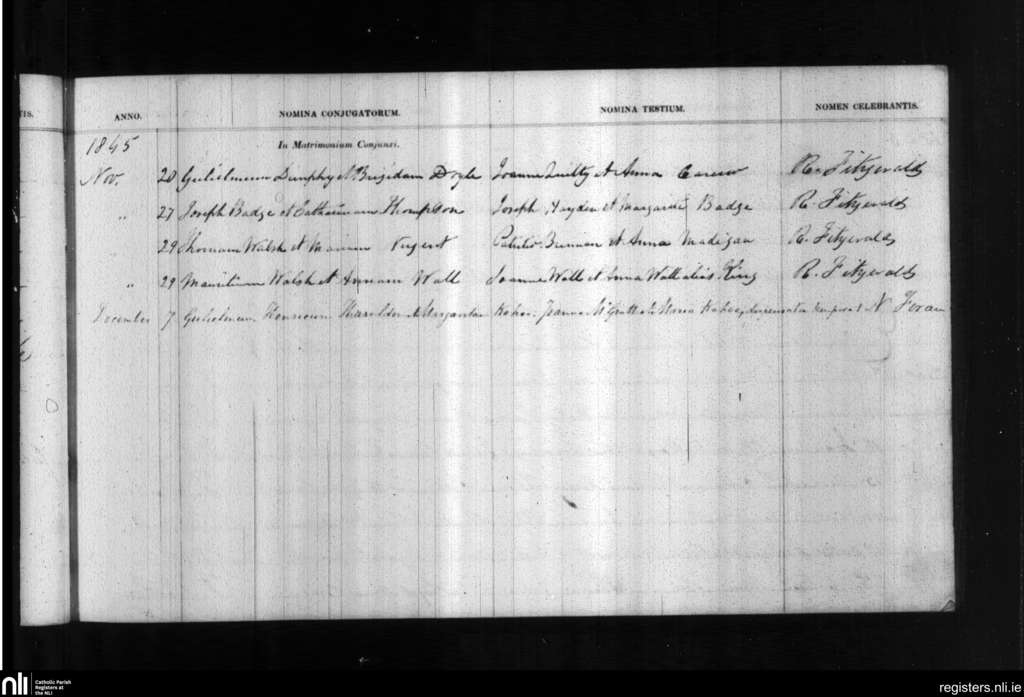 TIS.
ANNO. NOMINA CONJUGATORUM. NOMINA TESTIUM. NOMEN CELEBRANTIS.
1845 In Matrimonium Conjunxi.
Nov. 20 Gulielmum Dunphy et Brigidam Doyle Joanne Quilty et Anna Carew R. Fitzgerald
" 27 Joseph Badge et Catharinam Thompson Joseph Hayden et Margarita Badge R. Fitzgerald
29 Thomam Walsh et Mariam Nugent Patritio et Anna Madigan R. Fitzgerald
" 29 Mauritium Walsh et Annam Wall Joanne Wall et Anna Wall alias King R. Fitzgerald
December 7 Gulielmum et Margaritam Kehoe Joanne McGrath et Maria Kehoe N. Foran
nli Catholic Parish
Registers at
the NLI
registers.nli.ie